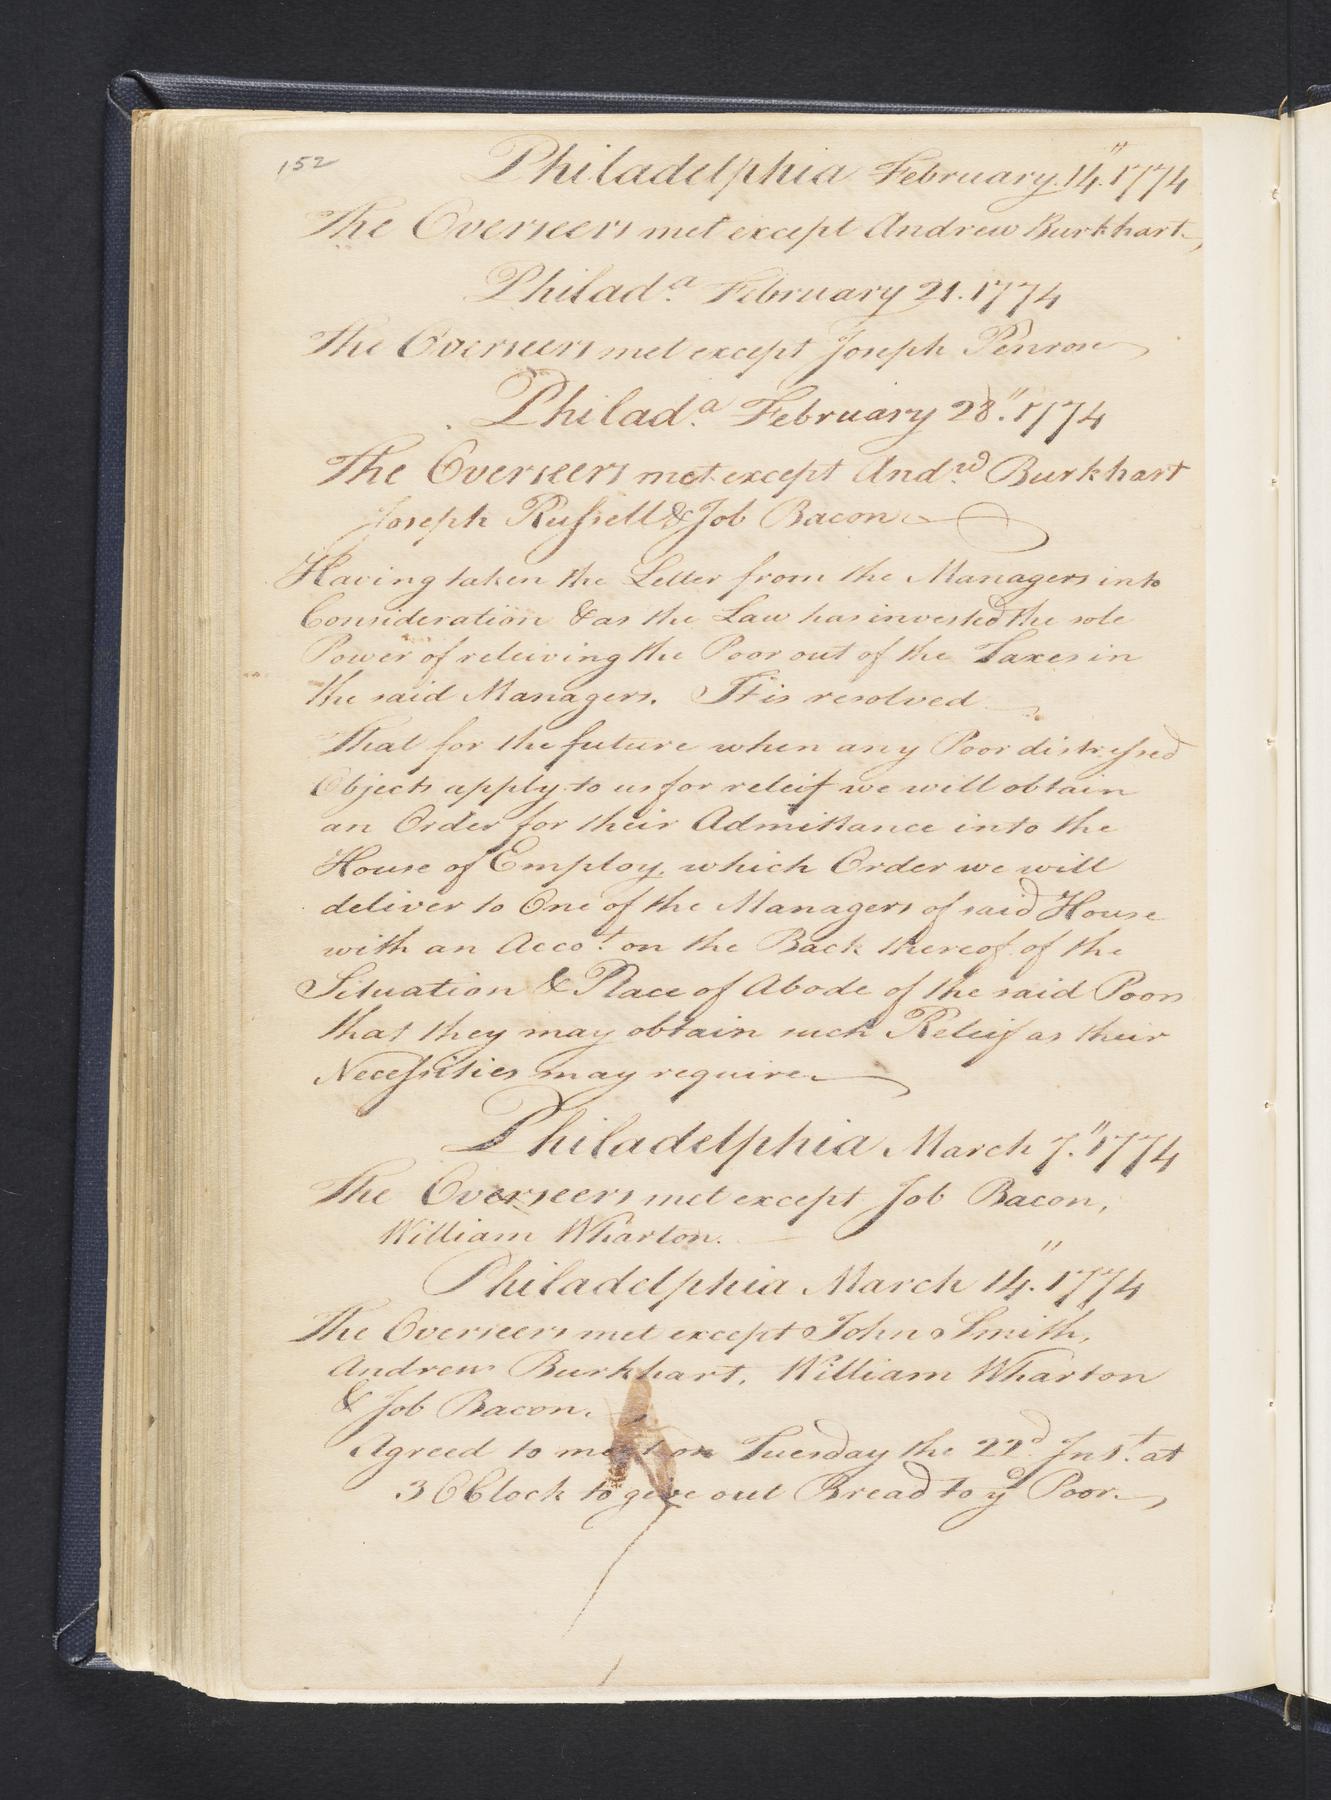 152
Philadelphia February 14.th 1774
The Overseers met except Andrew Burkhart
Philad.a February 21. 1774
The Overseers met except Joseph Penrose
Philad.a February 28." 1774
The Overseers met except And.w Burkhart
Joseph Russell & Job Bacon
Having taken the Letter from the Managers into
Consideration & as the Law has invested the sole
Power of releiving the Poor out of the Taxes in
the said Managers. It is resolved
That for the future when any Poor distressed
Objects apply to us for releif we will obtain
an Order for their Admittance into the
House of Employ, which Order we will
deliver to One of the Managers of said House
with an Acco.t on the Back thereof of the
Situation & Place of Abode of the said Poor
that they may obtain such Releif as their
Necessities may require
Philadelphia March 7." 1774
The Overseers met except Job Bacon,
William Wharton.
Philadelphia March 14." 1774
The Overseers met except John Smith,
Andrew Burkhart, William Wharton
& Job Bacon.
Agreed to meet on Tuesday the 22.d Inst. at
3 OClock to give out Bread to ye Poor